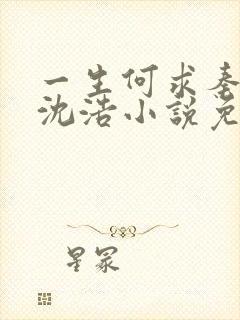 一生何求秦
沈浩小說免
星冢